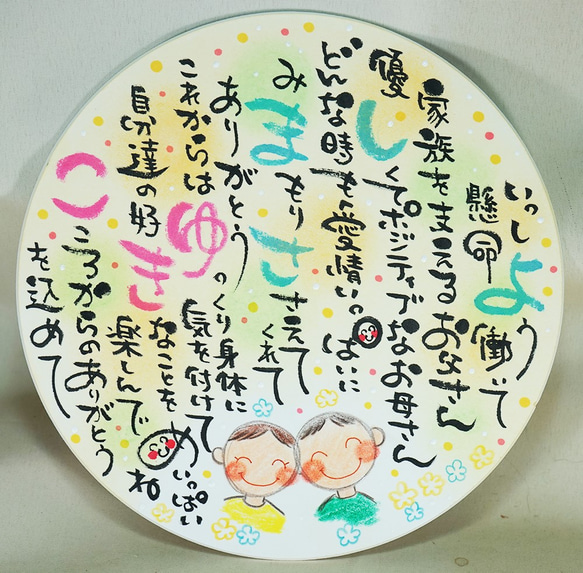 いっしょう
懸命働いて
家族を支えるお父さん
優しくてポジティブなお母さん
どんな時も愛情いっぱいに
みまもりささえて
くれて
ありがとう
これからはゆっくり身体に
気を付けて
自分達の好きなことを
めいっぱい
楽しんでね
こころからのありがとう
を込めて